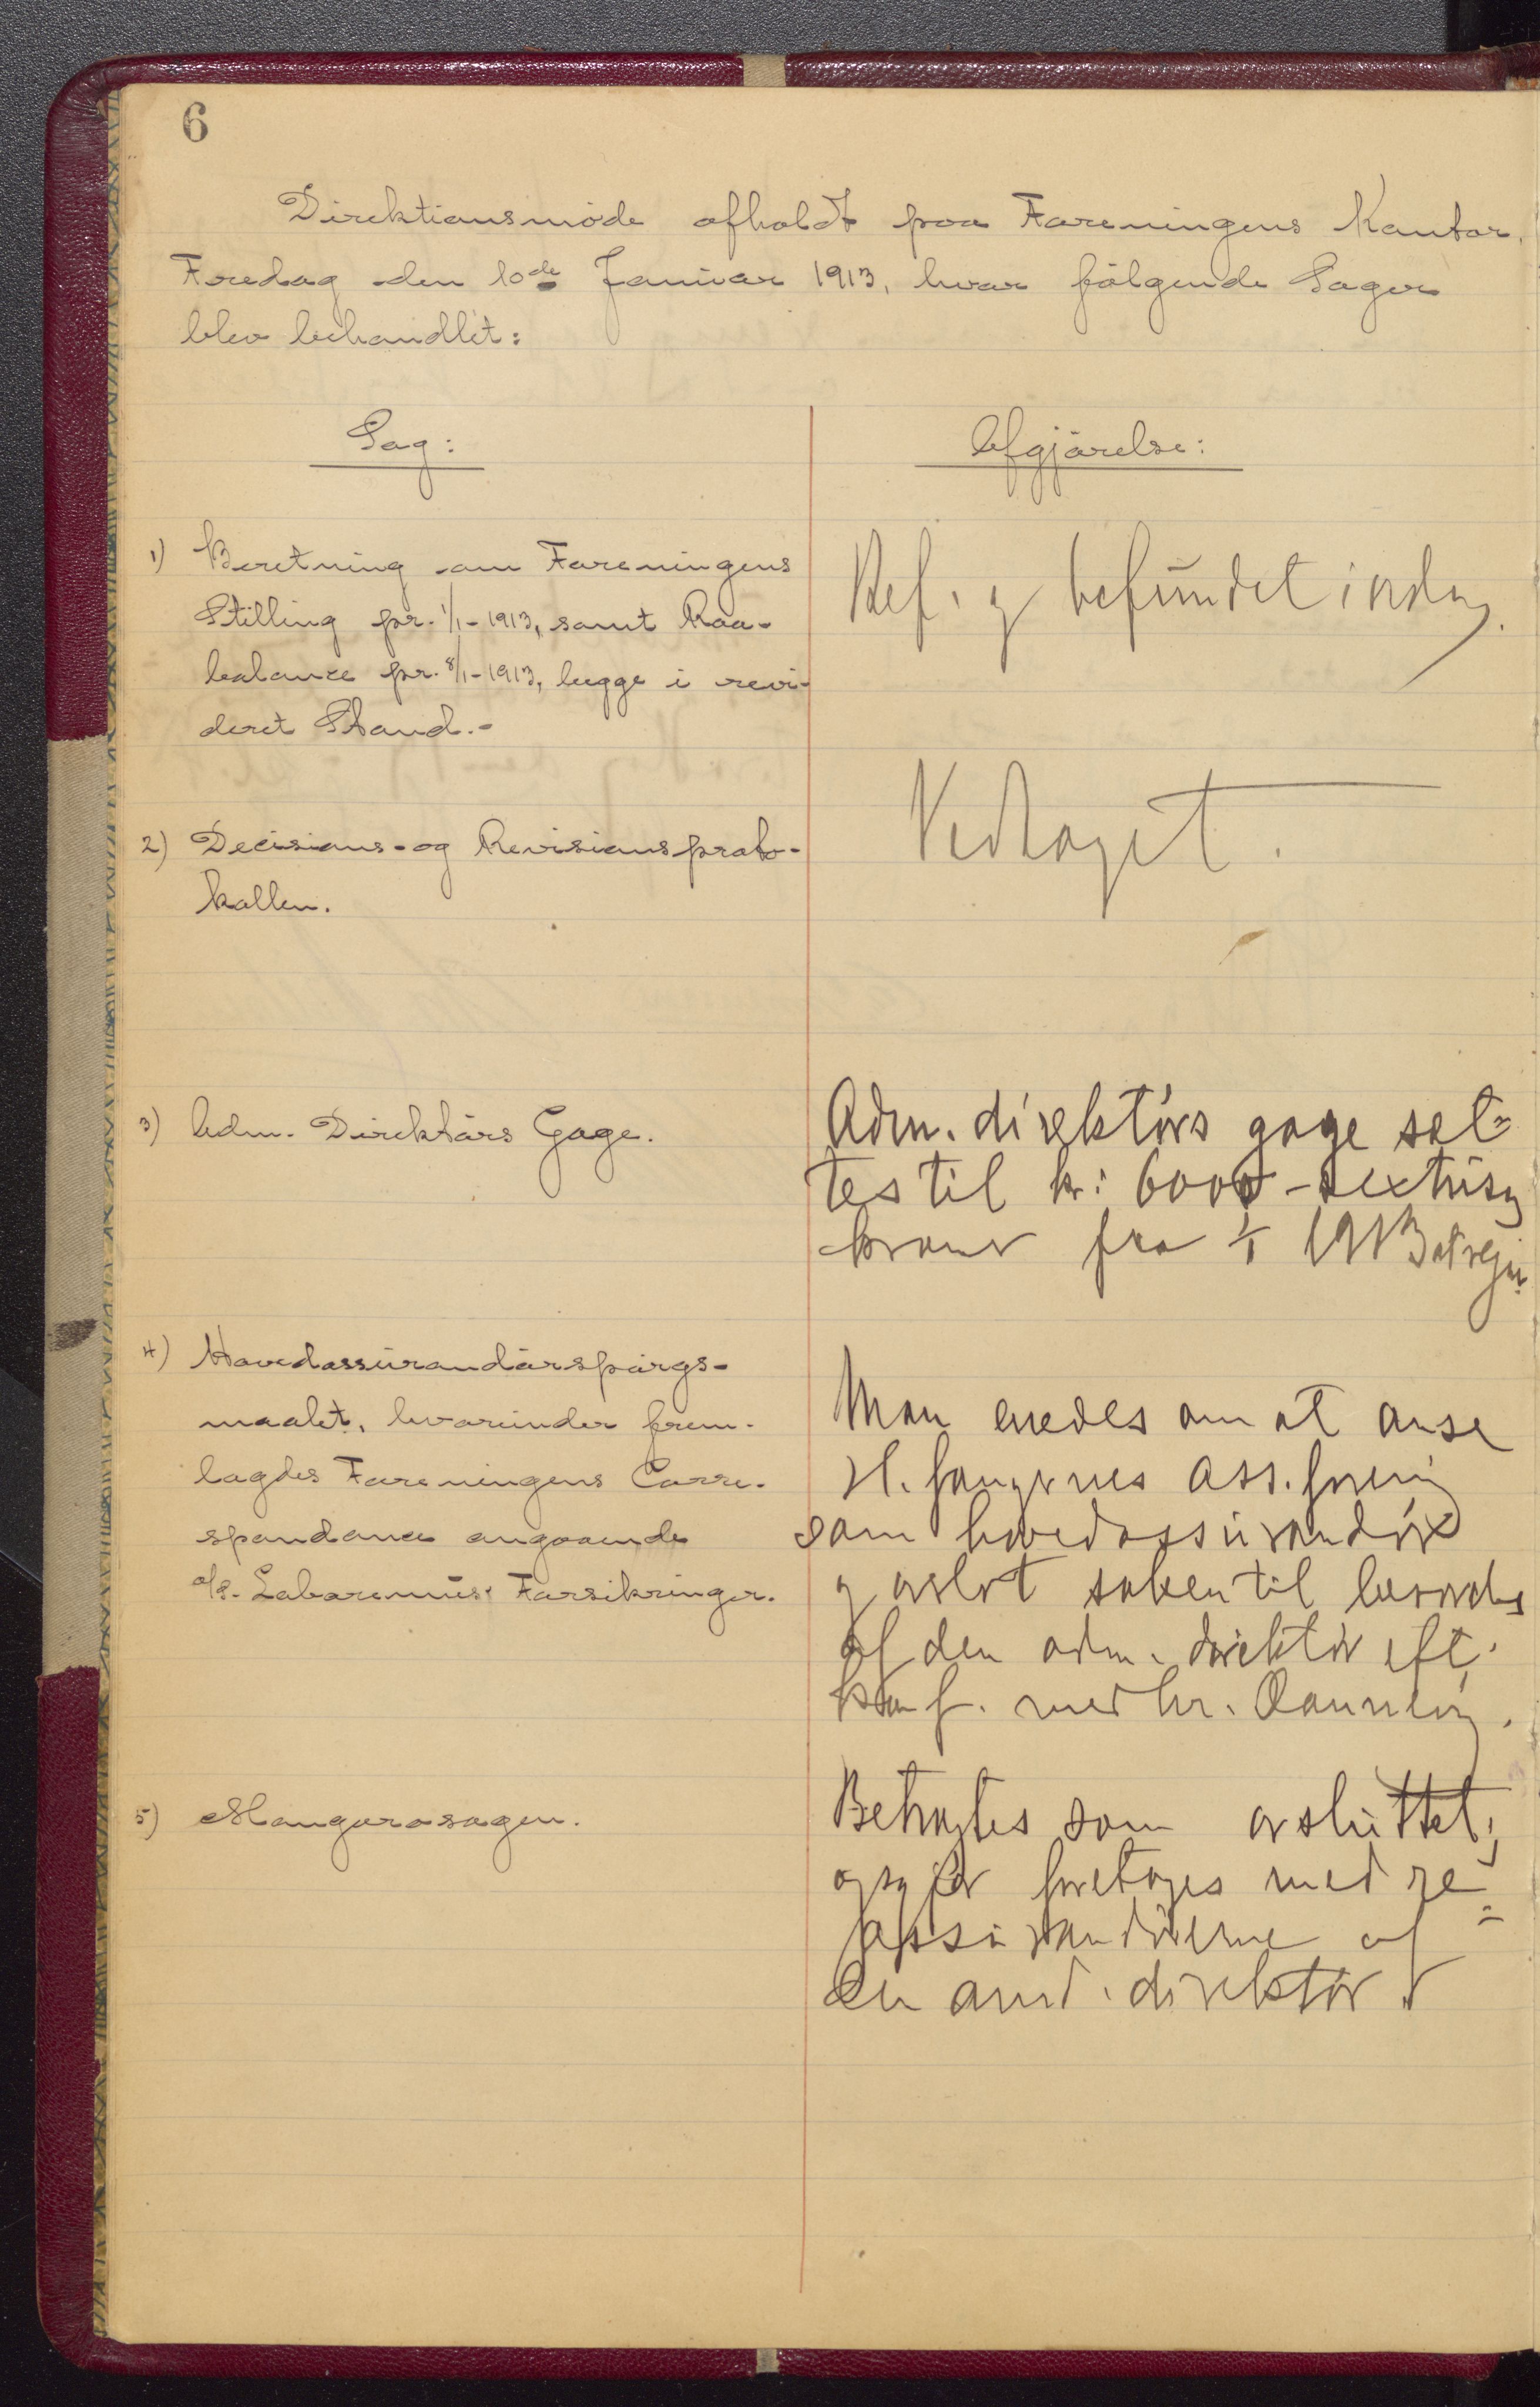 6
Direktionsmöde afholdt paa Foreningens Kontor,
Fredag den 10de Januar 1913, hvor fölgende Sager
blev behandlet:
Sag:
Afgjörelse:
1) Beretning om Foreningens
Stilling pr. 1/1-1913, samt Raa-
balance pr. 8/1-1913, begge i revi-
deret Stand.-
Ref. og befundet i orden.
2) Decisions- og Revisionsproto-
kollen.
Vedtaget.
3) Adm. Direktörs Gage.
Adm. direktörs gage set-
tes til kr: 6000 - sextusen
kroner fra 1/1 1913 at regne.
4) Hovedassurandörspörgs-
maalet, hvorunder frem-
lagdes Foreningens Corre-
spondance angaaende
a/s. Laboremus' Forsikringer.
Man enedes om at anse
H. fangernes Ass. forening
som hovedassurandör
og
saken til
af den adm. direktör eft.
konf. med hr.
5) Mangarasagen.
Betragtes som avsluttet;
foretages med re-
assurandörerne af
den amd. direktör.